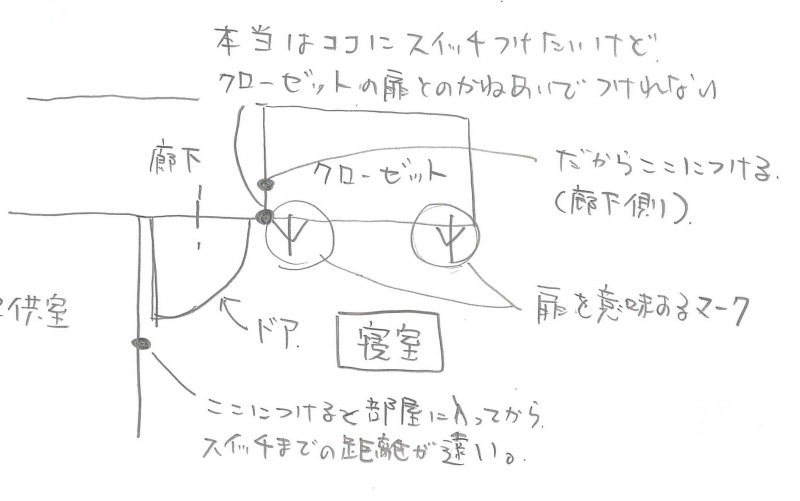 本当はココにスイッチつけたいけど
クローゼットの扉とのかねあいでつけれない
廊下
クローゼット
だからここにつける.
(廊下側).
供室
ドア.
寝室
扉を意味するマーク
ここにつけると部屋に入ってから.
スイッチまでの距離が遠い。